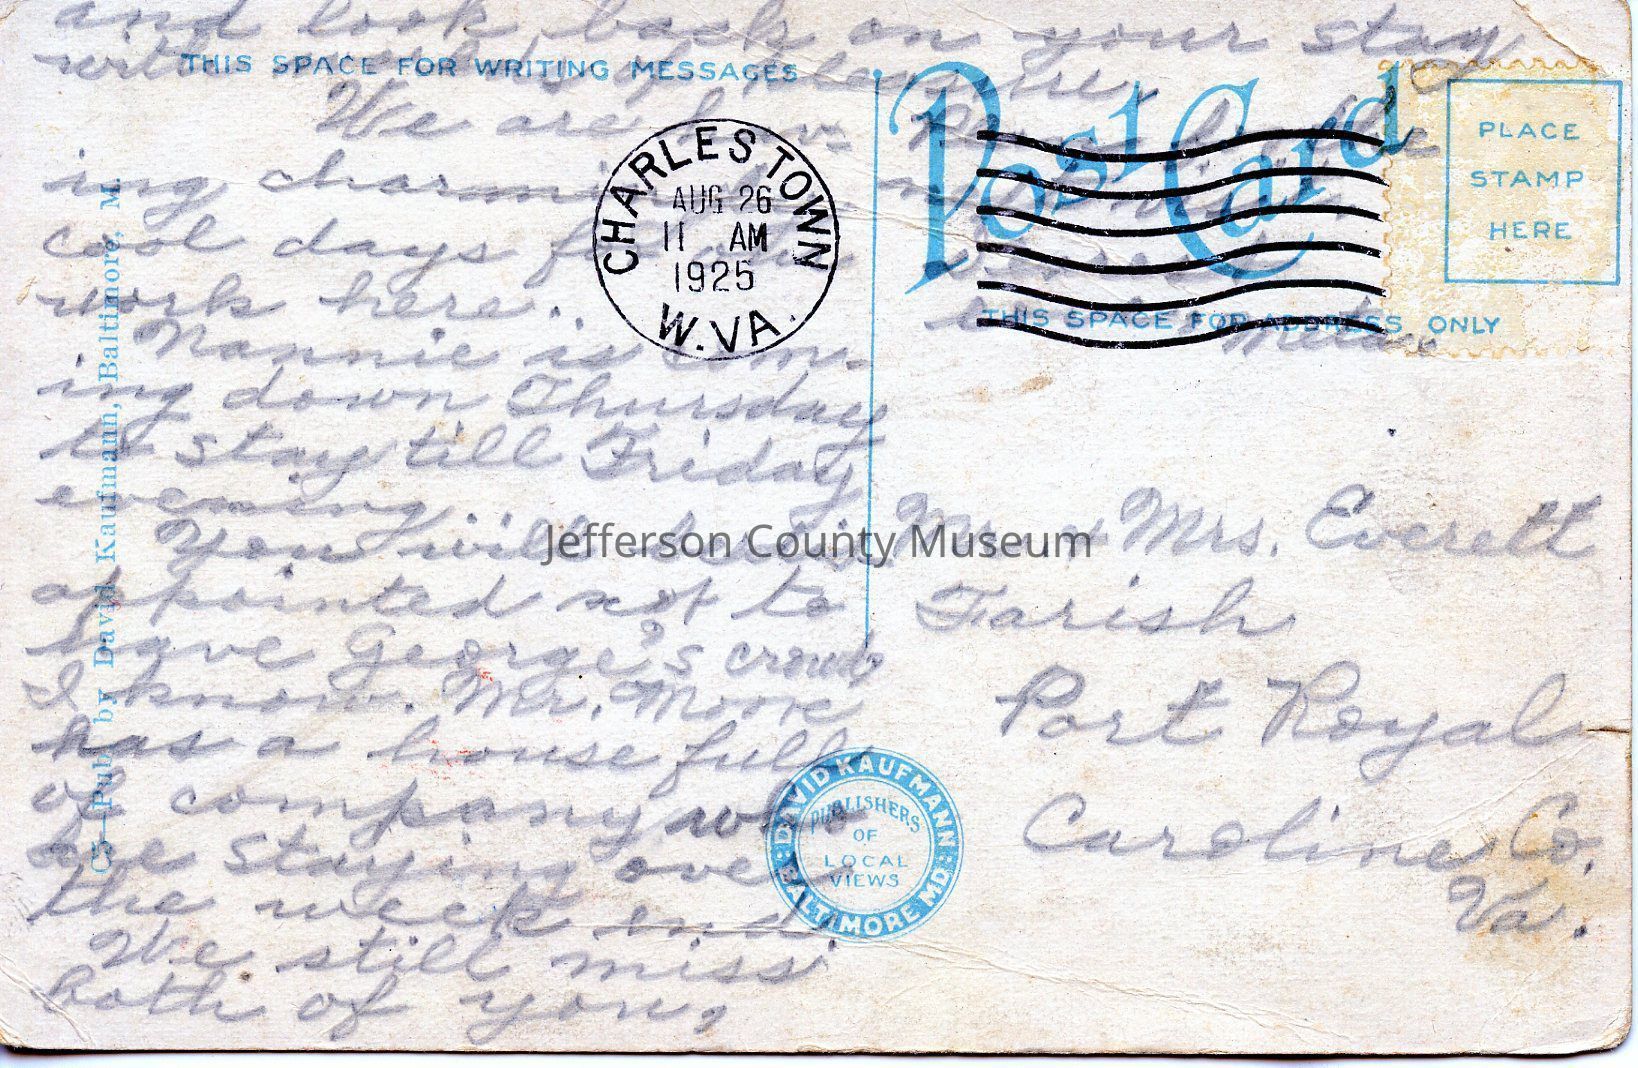 and look back on your stay
with
THIS SPACE FOR WRITING MESSAGES
We are
ing
cool days
work here.
Nannie is com-
ing down Thursday
to stay till Friday
evening.
You will be dis-
appointed not to
have George's crowd
I know. Mr. Moore
has a house full
of company who
are staying over
the week end.
We still miss
both of you,
C5—Pub. by David Kaufmann, Baltimore, M
CHARLES TOWN
AUG 26
11 AM
1925
W.VA.
Post Card
PLACE
STAMP
HERE
THIS SPACE FOR ADDRESS ONLY
Mr. & Mrs. Everett
Farish
Port Royal
Caroline Co.
Va.
Jefferson County Museum
DAVID KAUFMANN
PUBLISHERS
OF
LOCAL
VIEWS
BALTIMORE MD.